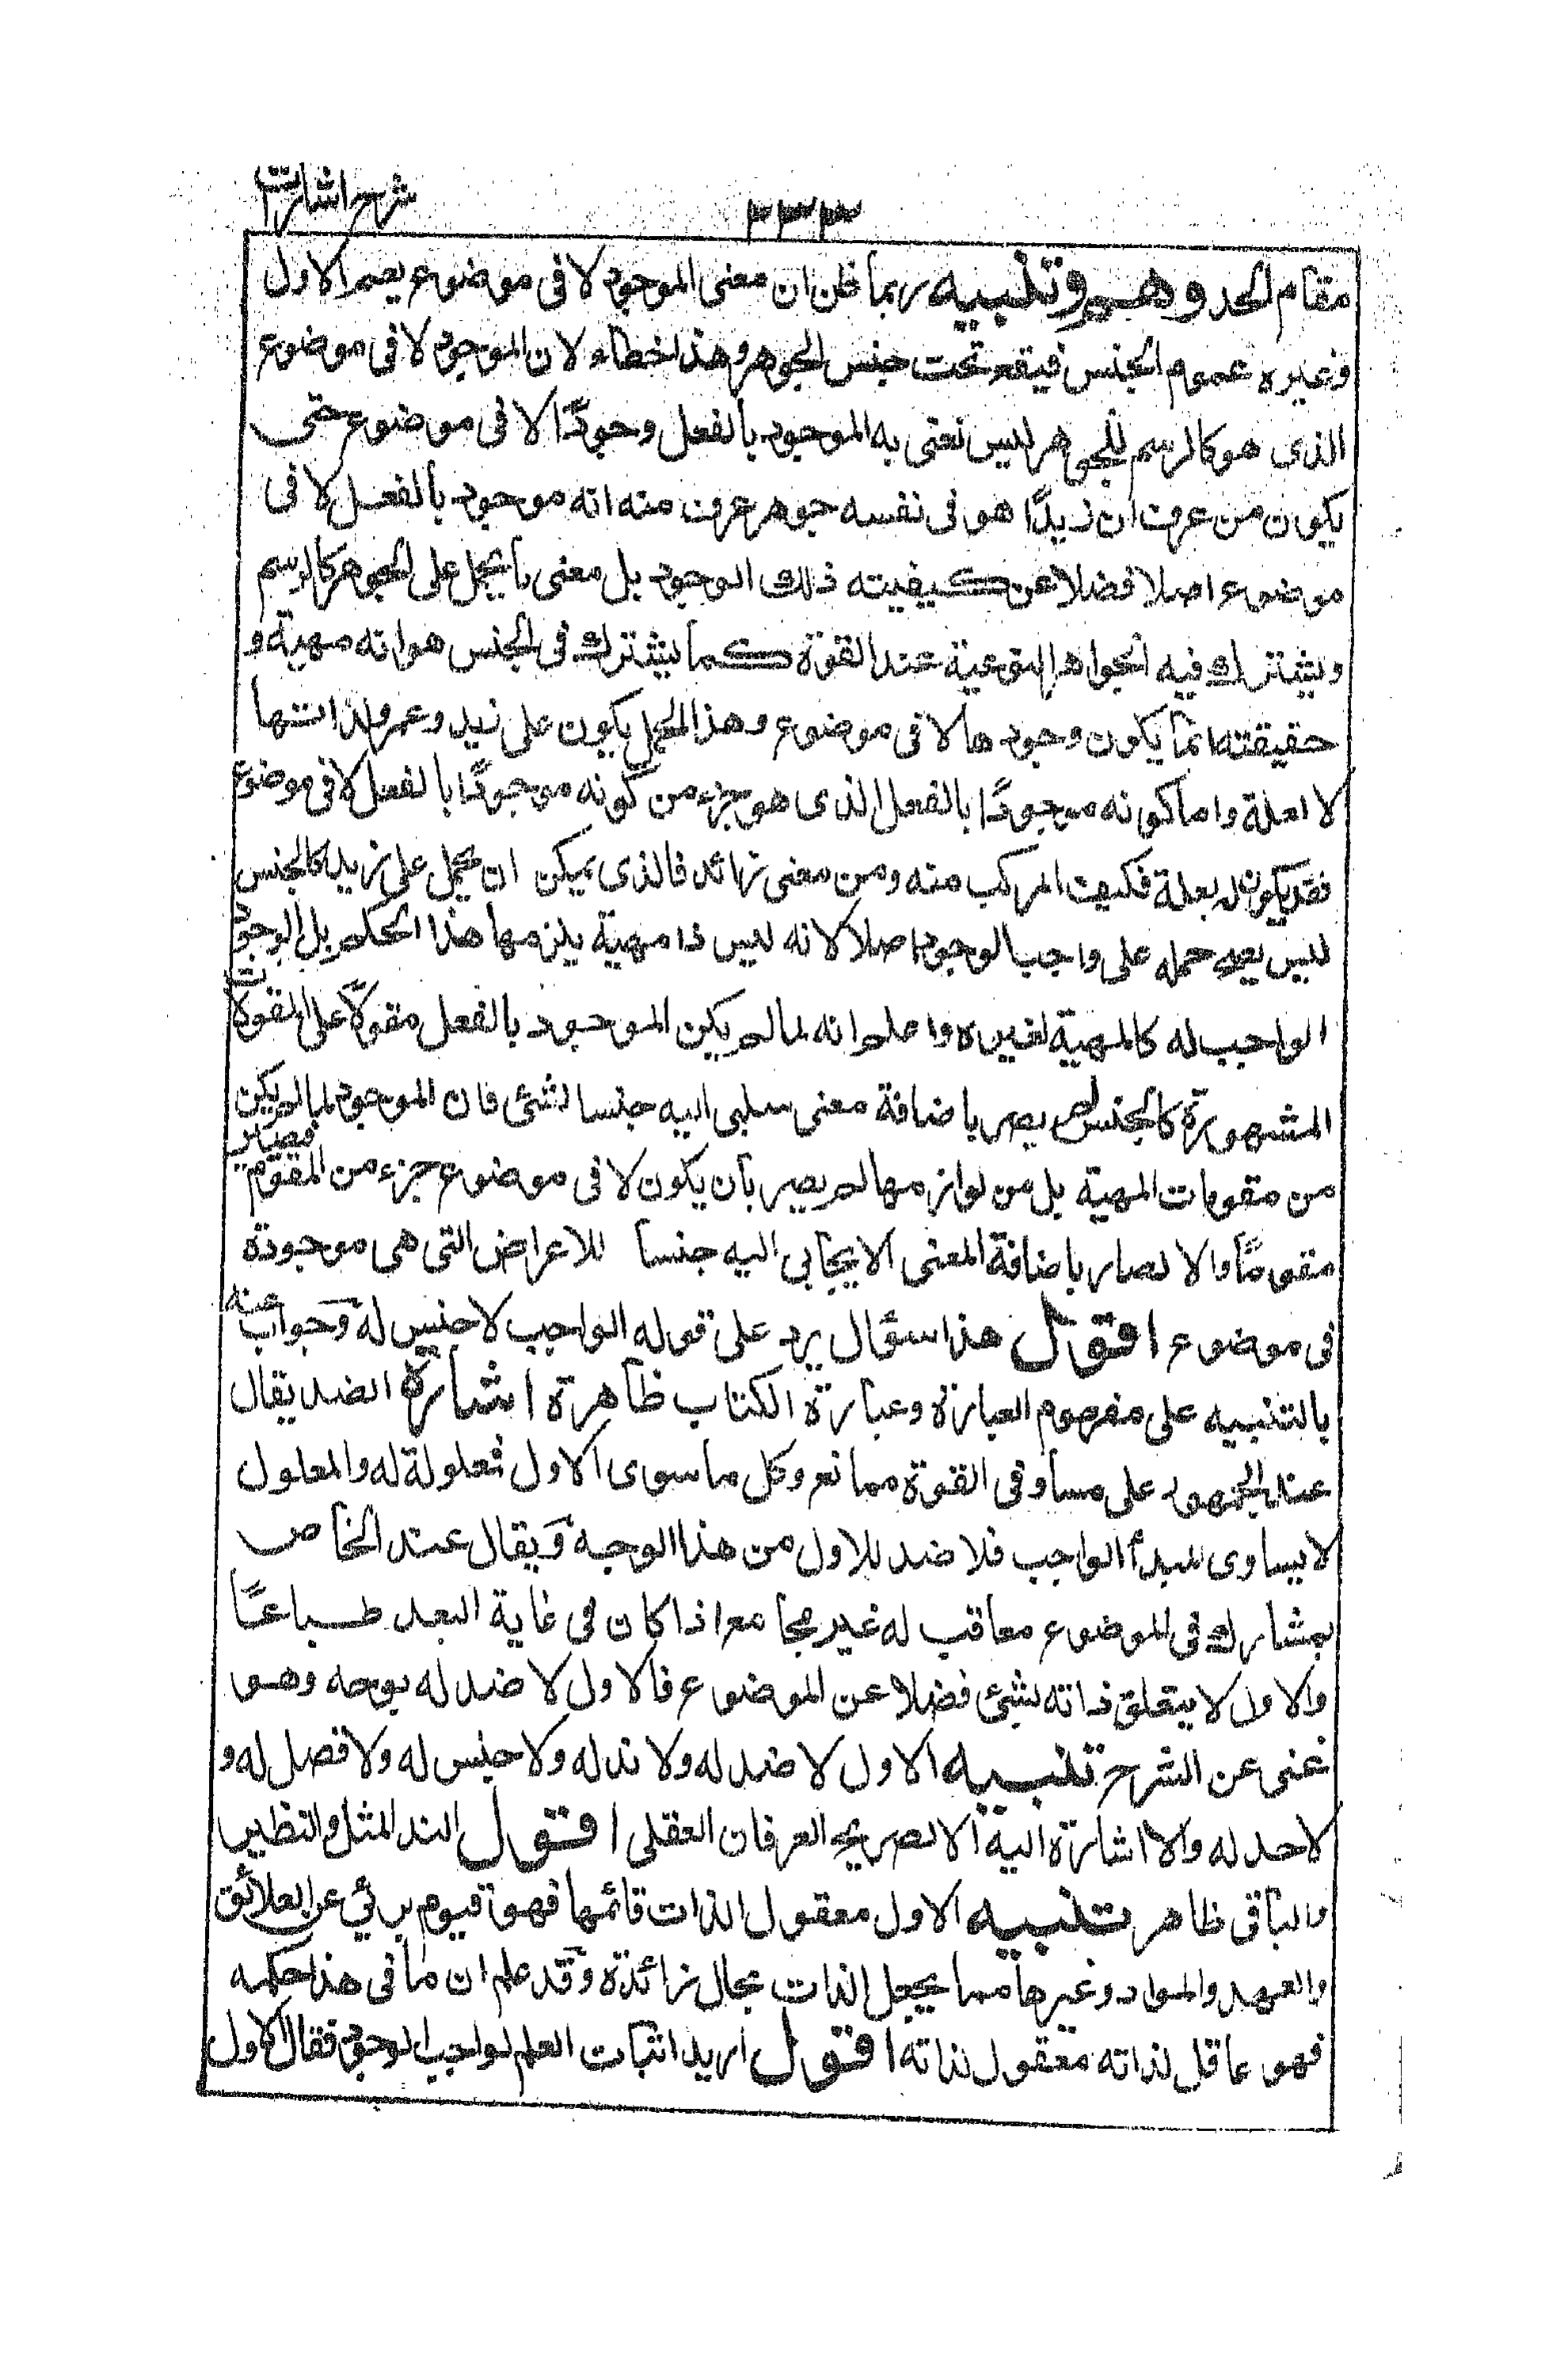 شرح اشارات
٢٣٣
مقام الحد وهم وتنبيه ربما ظن ان معنى الموجود لا فى موضوع يعم الاول
وغيره عموم الجنس فيقع تحت جنس الجوهر وهذا خطاء لان الموجود لا فى موضوع
الذى هو كالرسم للجوهر ليس نعنى به الموجود بالفعل وجودًا لا فى موضوع حتى
يكون من عرف ان زيدًا هو فى نفسه جوهر عرف منه انه موجود بالفعل لا فى
موضوع اصلا فضلا عن كيفيته ذلك الوجود بل معنى ما يحمل على الجوهر كالرسم
ويشترك فيه الجواهر النوعية عند القوة كما يشترك فى الجنس هو انه مهية و
حقيقته انما يكون وجودها لا فى موضوع وهذا الحمل يكون على زيد وعمرو لذاتها
لا لعلة واما كونه موجودًا بالفعل الذى هو جزء من كونه موجودًا بالفعل لا فى موضوع
فقد يكون له بعلة فكيف المركب منه ومن معنى زائد فالذى يمكن ان يحمل على زيد كالجنس
ليس يصح حمله على واجب الوجود اصلا لانه ليس ذا مهية يلزمها هذا الحكم بل الوجود
الواجب له كالمهية لغيره واعلم انه لما لم يكن الموجود بالفعل مقولًا على المقولات
المشهورة كالجنس لم يصر باضافة معنى سلبى اليه جنسا لشئ فان الموجود لما لم يكن
من مقومات المهية بل من لوازمها لم يصير بان يكون لا فى موضوع جزء من المقوم فيصير
مقومًا والا لصار باضافة المعنى الايجابى اليه جنسا للاعراض التى هى موجودة
فى موضوع اقول هذا سؤال يرد على قوله الواجب لا جنس له وجواب عنه
بالتنبيه على مفهوم العبارة وعبارة الكتاب ظاهرة اشارة الضد يقال
عند الجمهور على مساو فى القوة ممانع وكل ما سوى الاول فمعلولة له والمعلول
لا يساوى المبدأ الواجب فلا ضد للاول من هذا الوجه ويقال عند الخاص
بمشارك فى الموضوع معاقب له غير مجامع اذا كان فى غاية البعد طباعًا
والاول لا يتعلق ذاته بشئ فضلا عن الموضوع فالاول لا ضد له بوجه وهو
غنى عن الشرح تنبيه الاول لا ضد له ولا ند له ولا جنس له ولا فصل له و
لا حد له ولا اشارة اليه الا لصريح العرفان العقلى اقول الند المثل والنظير
والباقى ظاهر تنبيه الاول معقول الذات قائمها فهو قيوم برئ عن العلائق
والعهد والمواد وغيرها مما يجعل الذات بحال زائدة وقد علم ان ما فى هذا حكمه
فهو عاقل لذاته معقول لذاته اقول اريد اثبات العلم لواجب الوجود فقال الاول